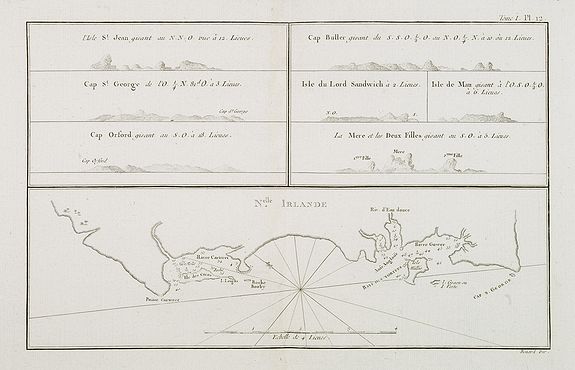 Tome I. Pl. 12
l'Isle St. Jean gisant au N-N-O vue à 12. Lieues.
Cap St. George de l'O. ¼ N. à 5. Lieues.
Cap St. George
Cap Orford gisant au S-O. à 18. Lieues.
Cap Orford
Cap Buller gisant du S-S-O. ¼ O. au N-O. ¼ N. à 10 ou 12. Lieues.
Isle du Lord Sandwich à 2. Lieues.
N-O.
S.
Isle de Man gisant à l'O.S-O. ¼ O.
à 6. Lieues.
La Mere et les Deux Filles gisant au S-O. à 5. Lieues.
Fille
Mere
Fille
N.elle IRLANDE
Riv. d'Eau douce
Havre Carteret
Isle des Cocos
I. Leigh
Roche
Booby
Pointe Carteret
Havre Gower
CAP S. GEORGE
Echelle de 4 Lieues
Benard Dir.